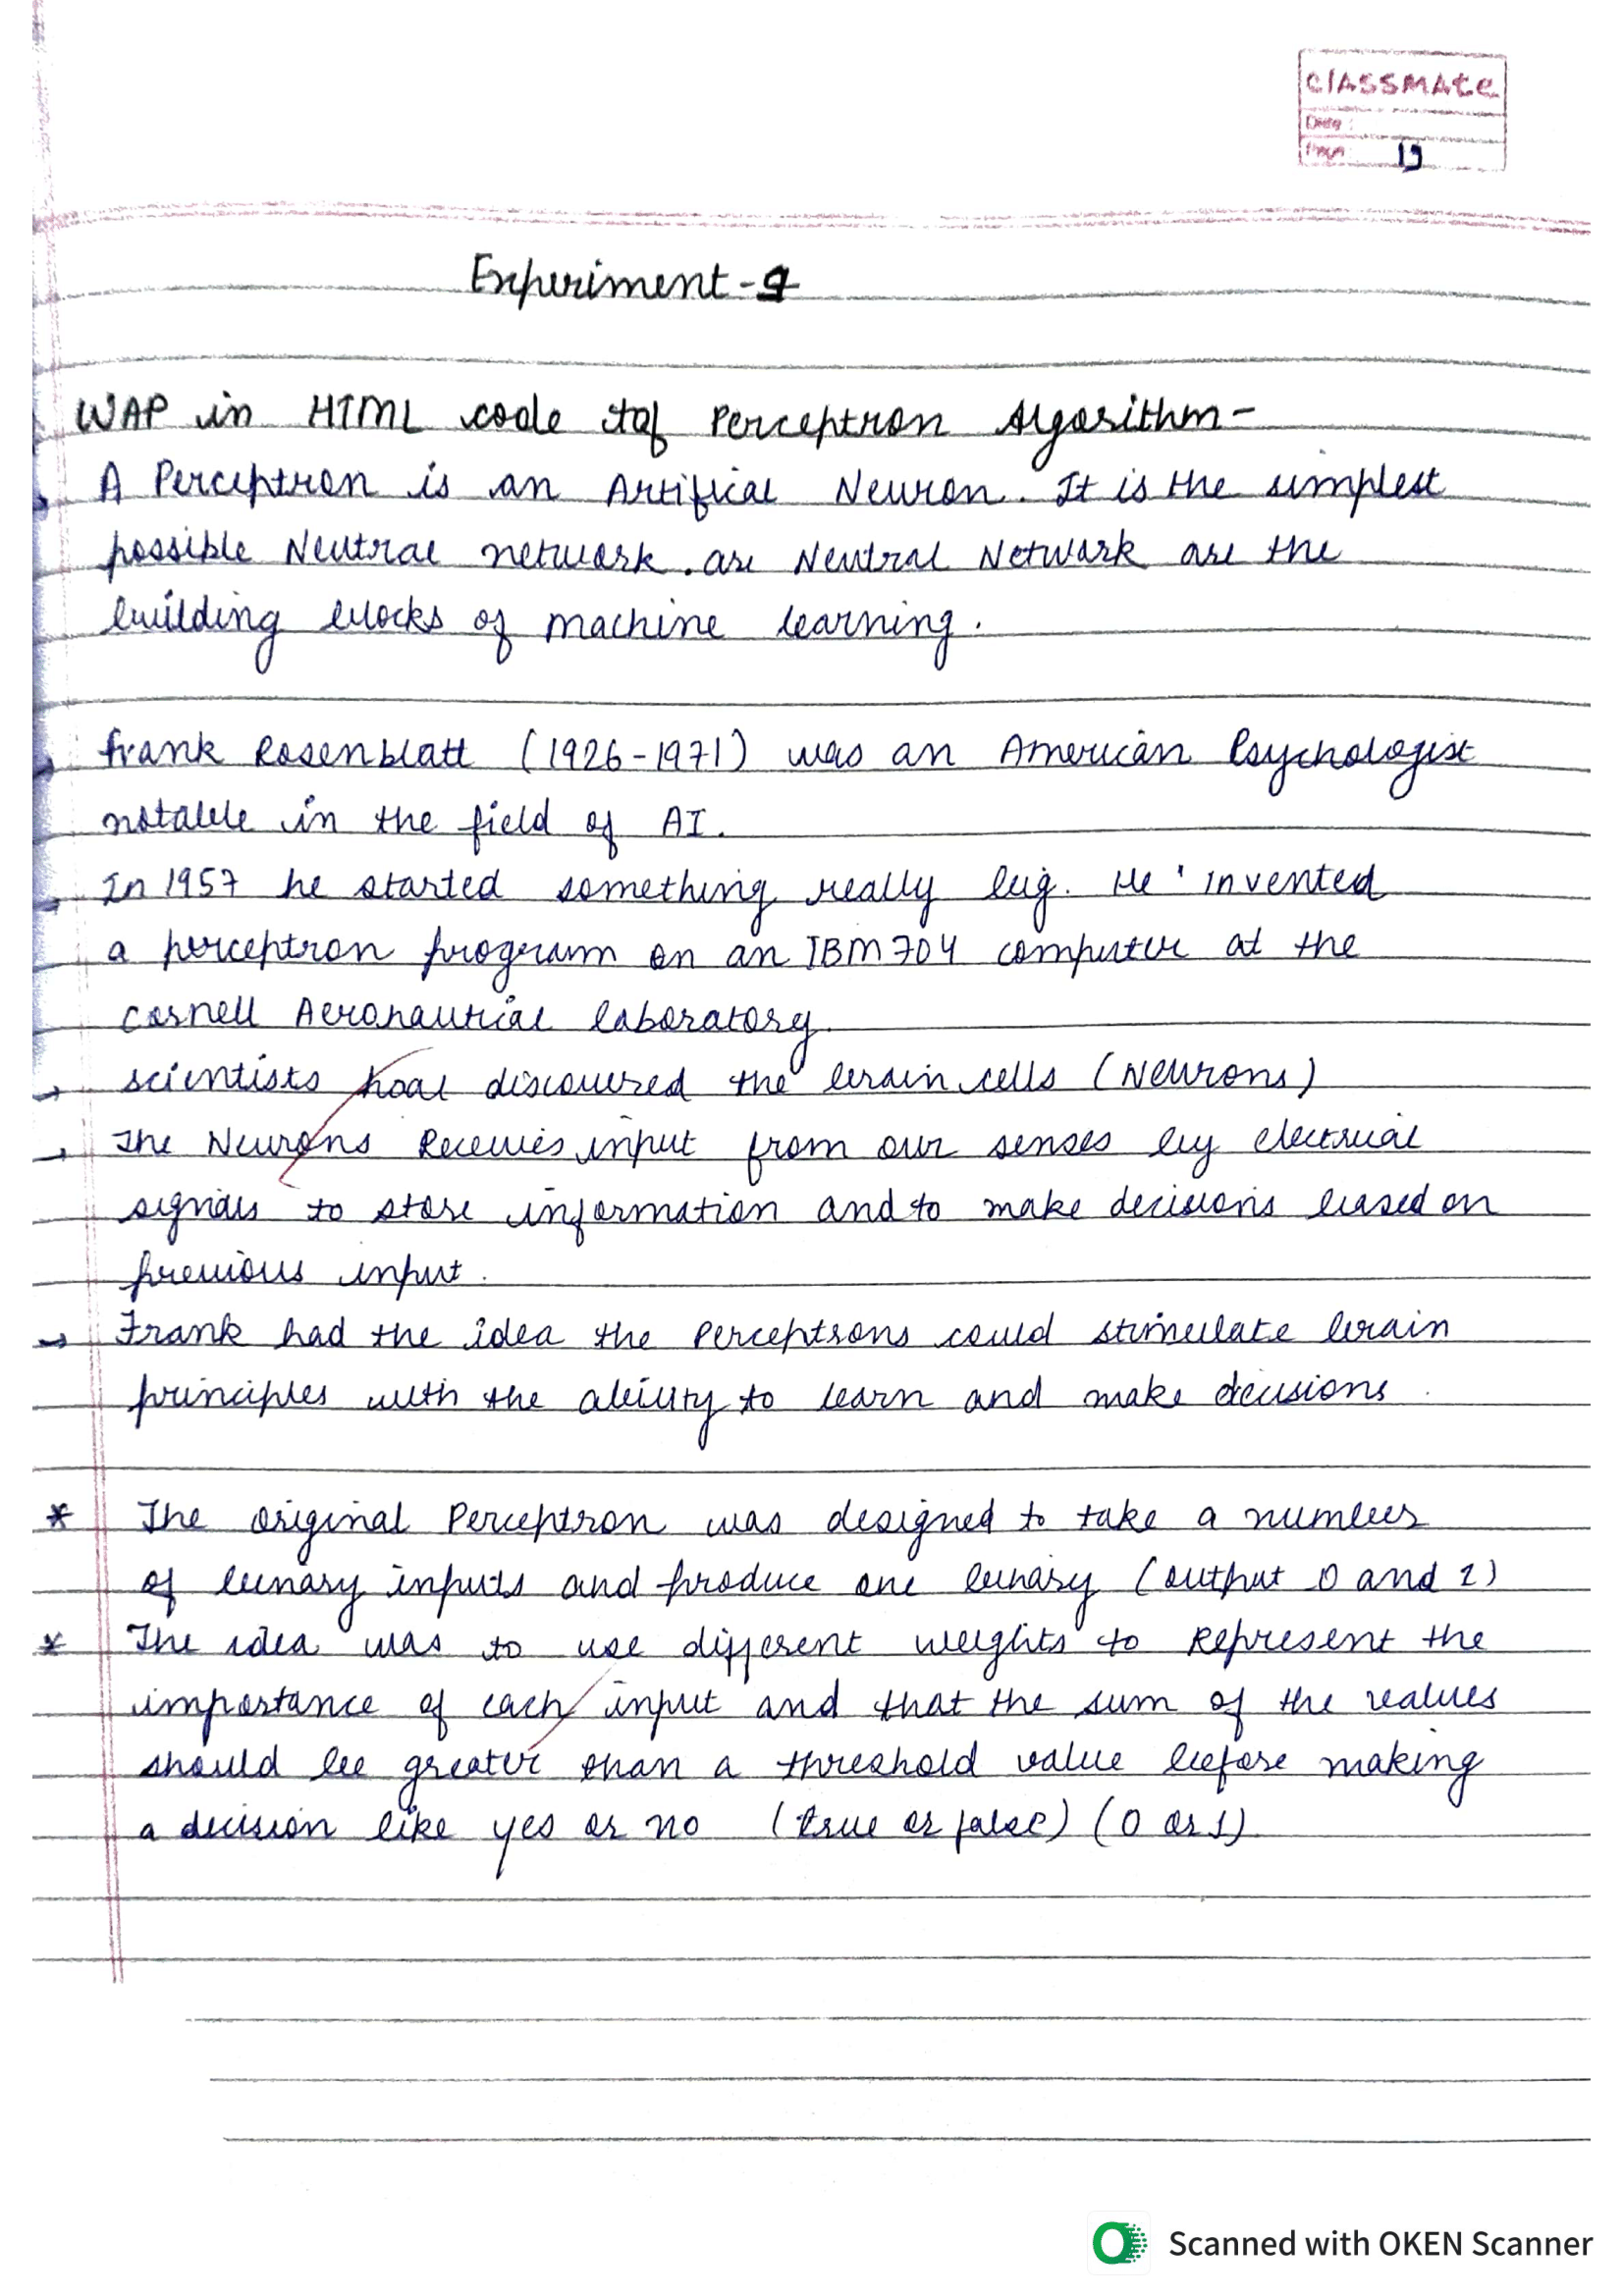 classmate
Date :
Page : 19
Experiment-9
WAP in HTML code of Perceptron Algorithm-
→ A Perceptron is an Artifical Neuron. It is the simplest
possible Neutral network. are Neutral Network are the
building blocks of machine learning.
→ Frank Rosenblatt (1926-1971) was an American Psychologist
notable in the field of AI.
→ In 1957 he started something really big. He invented
a perceptron program on an IBM 704 computer at the
Cornell Aeronautical Laboratory.
→ scientists had discovered the brain cells (Neurons)
→ The Neurons Receives input from our senses by electrical
signals to store information and to make decisions based on
previous input.
→ Frank had the idea the Perceptrons could stimulate brain
principles with the ability to learn and make decisions.
* The original Perceptron was designed to take a number
of binary inputs and produce one binary (output 0 and 1)
* The idea was to use different weights to Represent the
importance of each input and that the sum of the values
should be greater than a threshold value before making
a decision like yes or no (true or false) (0 or 1)
Scanned with OKEN Scanner